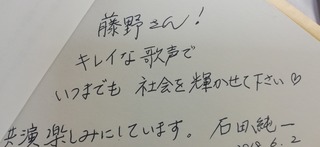 藤野さん!
キレイな歌声で
いつまでも 社会を輝かせて下さい♡
共演楽しみにしています。 石田純一
2018.6.2